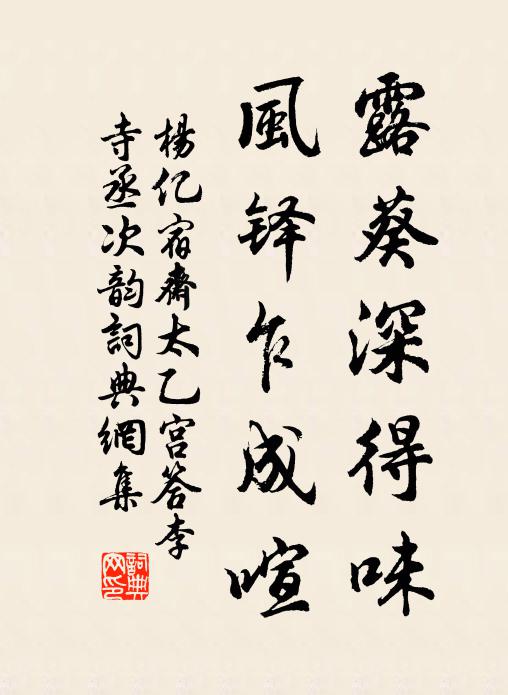 露葵深得味
風铎乍成喧
楊亿宿齋太乙宫答李
寺丞次韵詞典網集
詞典网印